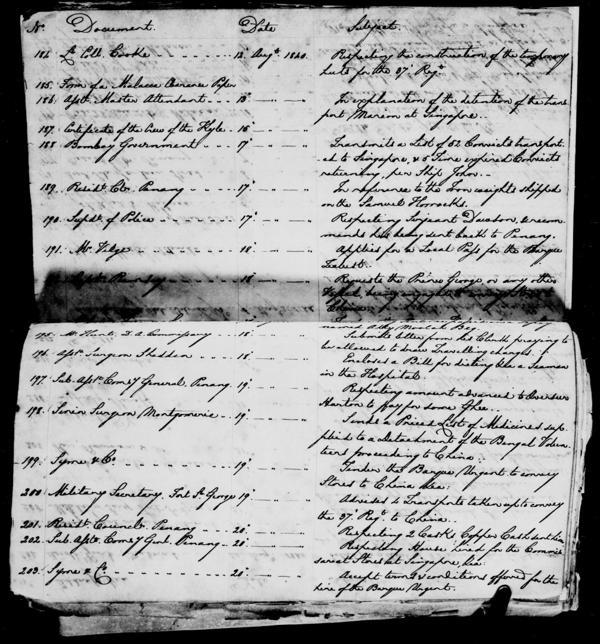 No. Document. Date Subject.
184. Lt. Coll. Cooke 13 Augt. 1840. Respecting the construction of the temporary
huts for the 37 Regt.
185. Form of a Malacca Clearance Paper
186. Asst. Master Attendant 13 In explanation of the detention of the trans
port Marion at Singapore.
187. Certificate of the Crew of the Kyle 15
188. Bombay Government 17 Transmits a List of 52 Convicts transport.
ed to Singapore, & 5 Time expired Convicts
returning, per Ship John.
189. Residt. Cr. Penang 17 In reference to the Iron weights shipped
on the Samuel Horrocks.
190. Supdt. of Police 17 Respecting Serjeant Davison, & recom
mends his being sent back to Penang.
191. Mr. 18 Applies for a Local Pass for the Barque
18 Requests the Prince George or any other
Vessel being engaged to
China
named
195. Mr. Hunt, D. A. Commissary Submits letter from his Clerk praying to
be allowed to draw Travelling charges.
196. Asst. Surgeon Encloses a Bill for dieting Sea Seaman
in the Hospital.
197. Sub. Asst. Comsy General, Penang 19 Respecting amount advanced to Overseer
to pay for some
198. Senior Surgeon Montgomerie 19 Sends a Priced List of Medicines sup
plied to a Detachment of the Bengal Volun
teers proceeding to China.
199. Syme & Co. 19 Tenders the Barque Urgent to convey
Stores to China &ca.
200. Military Secretary Fort St. George 19 Advised Transports taken up to convey
the 37 Regt. to China.
201. Residt. Councilr. Penang 20 Respecting 2 Casks Copper Cash sent him
202. Sub. Asst. Comsy Genl. Penang 20 Respecting House hired for the Commis
sariat Stores at Singapore, &ca.
203. Syme & Co 20 Accept terms & conditions offered for the
hire of the Barque Urgent.